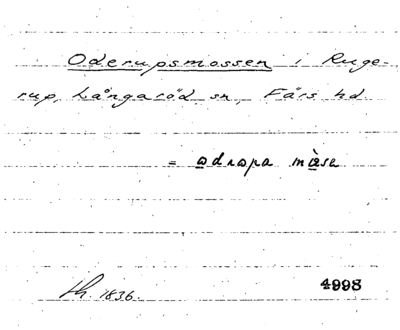 Oderupsmossen i Ruge-
rup, Långaröd sn, Färs hd
= odropa måse
th. 1836.
4998